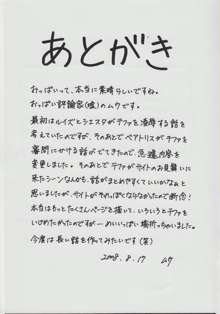 あとがき
おっぱいって、本当に素晴らしいですね。
おっぱい評論家(嘘)のムウです。
最初はルイズとシエスタがテファを凌辱する話を
考えていたのですが、そのあとでベアトリスがテファを
審問にかける話がでてきたので、急遽内容を
変更しました。そのあとでテファがサイトのお見舞いに
来たシーンなんかも、話がまとめやすくていいかなぁと
思いましたが、サイトがそっぽくならなかったので断念!
本当はもっとたくさんページを描いて、いろいろとテファを
いじめたかったのですが…めいいっぱい場所っちゃいました。
今度は長い話を作ってみたいです(笑)
2008.8.17 ムウ